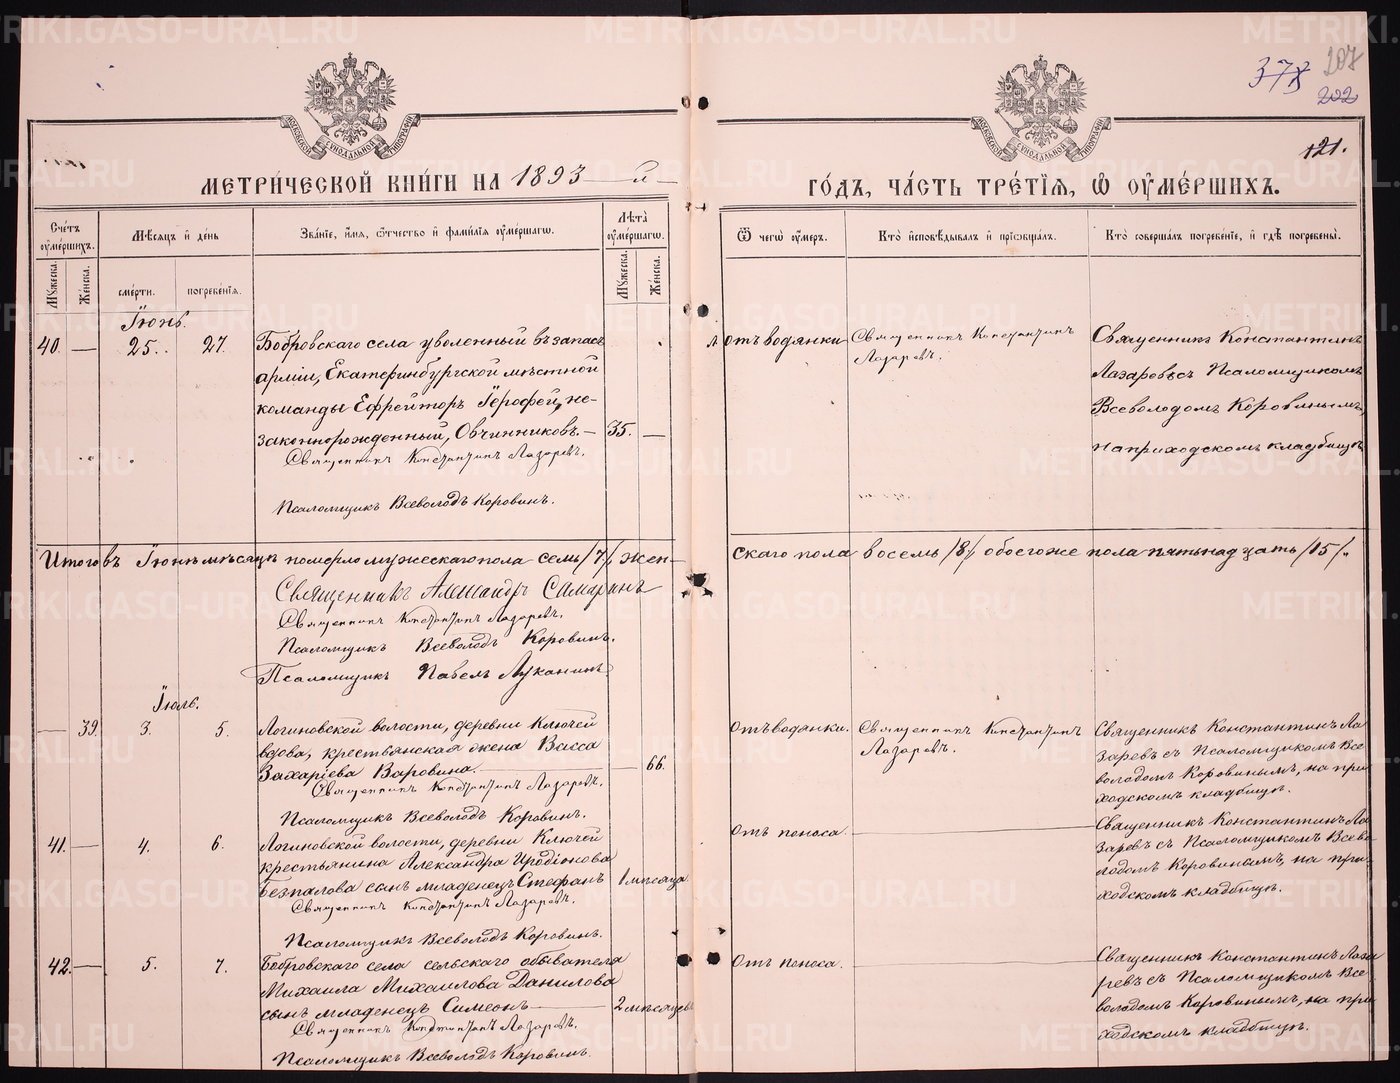 373 207
202
121.
МОСКОВСКОЙ СѴНОДАЛЬНОЙ ТИПОГРАФІИ
МОСКОВСКОЙ СѴНОДАЛЬНОЙ ТИПОГРАФІИ
МЕТРИ́ЧЕСКОЙ КНИ́ГИ НА 1893 — й —
ГО́ДЪ, ЧА́СТЬ ТРЕ́ТІѦ, Ѡ ОУМЕ́РШИХЪ.
Сче́тъ оуме́ршихъ.
Му́жеска.
Же́нска.
Мѣ́сяцъ и де́нь
сме́рти.
погребе́нія.
Зва́ніе, и́мя, ѻ́тчество и фами́лія оуме́ршагѡ.
Лѣта̀ оуме́ршагѡ.
Му́жеска.
Же́нска.
Ѿ чегѡ̀ оу́меръ.
Кто̀ и҆сповѣ́дывалъ и҆ прїѡбща́лъ.
Кто̀ соверша́лъ погребе́ніе, и҆ гдѣ̀ погребены̀.
Іюнь.
40. — 25. 27. Бобровскаго села уволенный въ запасъ
арміи, Екатеринбургской мѣстной
команды Ефрейторъ Іерофей, не-
законнорожденный, Овчинниковъ. — 35. —
Священникъ Константинъ Лазаревъ.
Псаломщикъ Всеволодъ Коровинъ.
отъ водянки
Священникъ Константинъ
Лазаревъ.
Священникъ Константинъ
Лазаревъ съ Псаломщикомъ
Всеволодомъ Коровинымъ,
на приходскомъ кладбищѣ
Итого въ Іюнѣ мѣсяцѣ померло мужескаго пола семь /7/, жен-
скаго пола восемь /8/, обоего же пола пятнадцать /15/.
Священникъ Александръ Самаринъ
Священникъ Константинъ Лазаревъ.
Псаломщикъ Всеволодъ Коровинъ.
Псаломщикъ Павелъ Луканинъ
Іюль.
— 39. 3. 5. Логиновской волости, деревни Ключей
вдова, крестьянская жена Васса
Захаріева Варовина. — 66.
Священникъ Константинъ Лазаревъ.
Псаломщикъ Всеволодъ Коровинъ.
Отъ водянки.
Священникъ Константинъ
Лазаревъ.
Священникъ Константинъ Ла
заревъ съ Псаломщикомъ Все
володомъ Коровинымъ, на при
ходскомъ кладбищѣ.
41. — 4. 6. Логиновской волости, деревни Ключей
крестьянина Александра Иродіонова
Безпалова сынъ младенецъ Стефанъ 1 мѣсяца
Священникъ Константинъ Лазаревъ.
Псаломщикъ Всеволодъ Коровинъ.
Отъ поноса. —
Священникъ Константинъ Ла
заревъ съ Псаломщикомъ Всево
лодомъ Коровинымъ, на при
ходскомъ кладбищѣ.
42. — 5. 7. Бобровскаго села сельскаго обывателя
Михаила Михаилова Данилова
сынъ младенецъ Симеонъ — 2 мѣсяцевъ
Священникъ Константинъ Лазаревъ.
Псаломщикъ Всеволодъ Коровинъ.
Отъ поноса. —
Священникъ Константинъ Лаза
ревъ съ Псаломщикомъ Все
володомъ Коровинымъ, на при
ходскомъ кладбищѣ.
METRIKI.GASO-URAL.RU